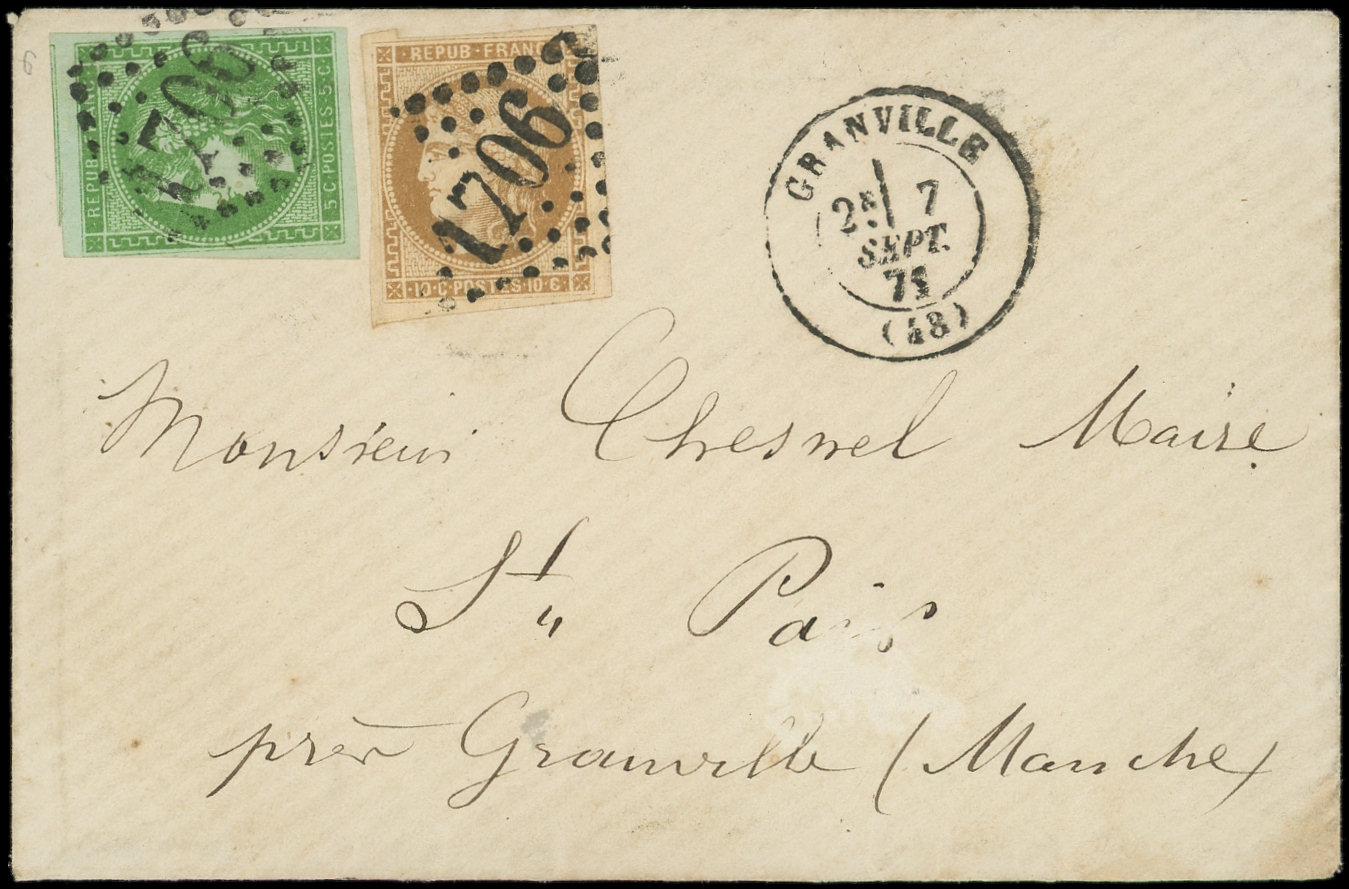 REPUB
5 C POSTES 5 C
1706
REPUB·FRANC
10·C·POSTES·10·C
1706
GRANVILLE
2E 7
SEPT.
71
(48)
Monsieur Chesnel Maire
St Pair
près Granville (Manche)